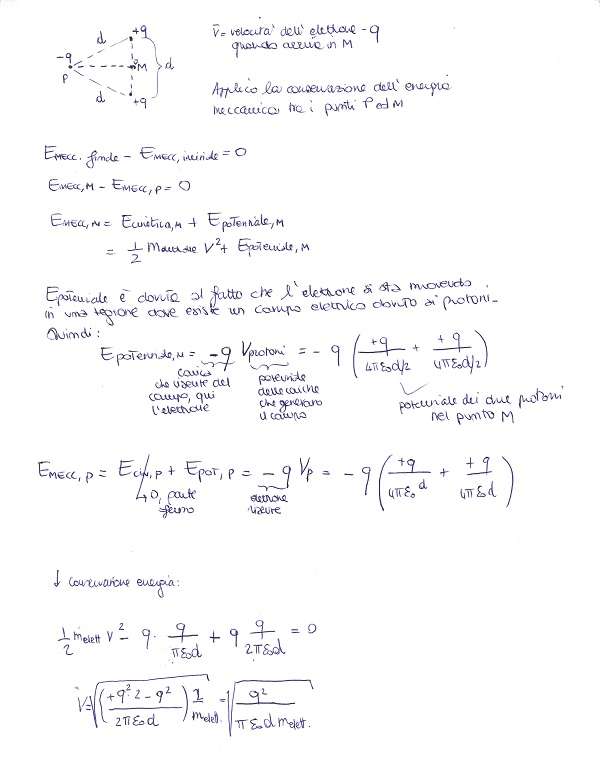 +q
d
-q
P
M
d
d
+q
v̄ = velocità dell'elettrone -q
quando arriva in M
Applico la conservazione dell'energia
meccanica tra i punti P ed M
E_MECC. finale - E_MECC, iniziale = 0
E_MECC, M - E_MECC, P = 0
E_MECC, M = E_cinetica, M + E_potenziale, M
= 1/2 m_elettrone V² + E_potenziale, M
E_potenziale è dovuta al fatto che l'elettrone si sta muovendo
in una regione dove esiste un campo elettrico dovuto ai protoni-
Quindi:
E_potenziale, M = -q V_protoni = - q ( +q / 4πε₀d/2 + +q / 4πε₀d/2 )
carica
che risente del
campo, qui
l'elettrone
potenziale
delle cariche
che generano
il campo
potenziale dei due protoni
nel punto M
E_MECC, P = E_cin, P + E_POT, P = - q V_P = - q ( +q / 4πε₀d + +q / 4πε₀d )
↳ 0, parte
fermo
elettrone
↓ conservazione energia:
1/2 m_elett V² - q · q / πε₀d + q q / 2πε₀d = 0
V = √( ( +q² 2 - q² / 2πε₀d ) 2 / m_elett. ) = √( q² / πε₀ d m_elett. )